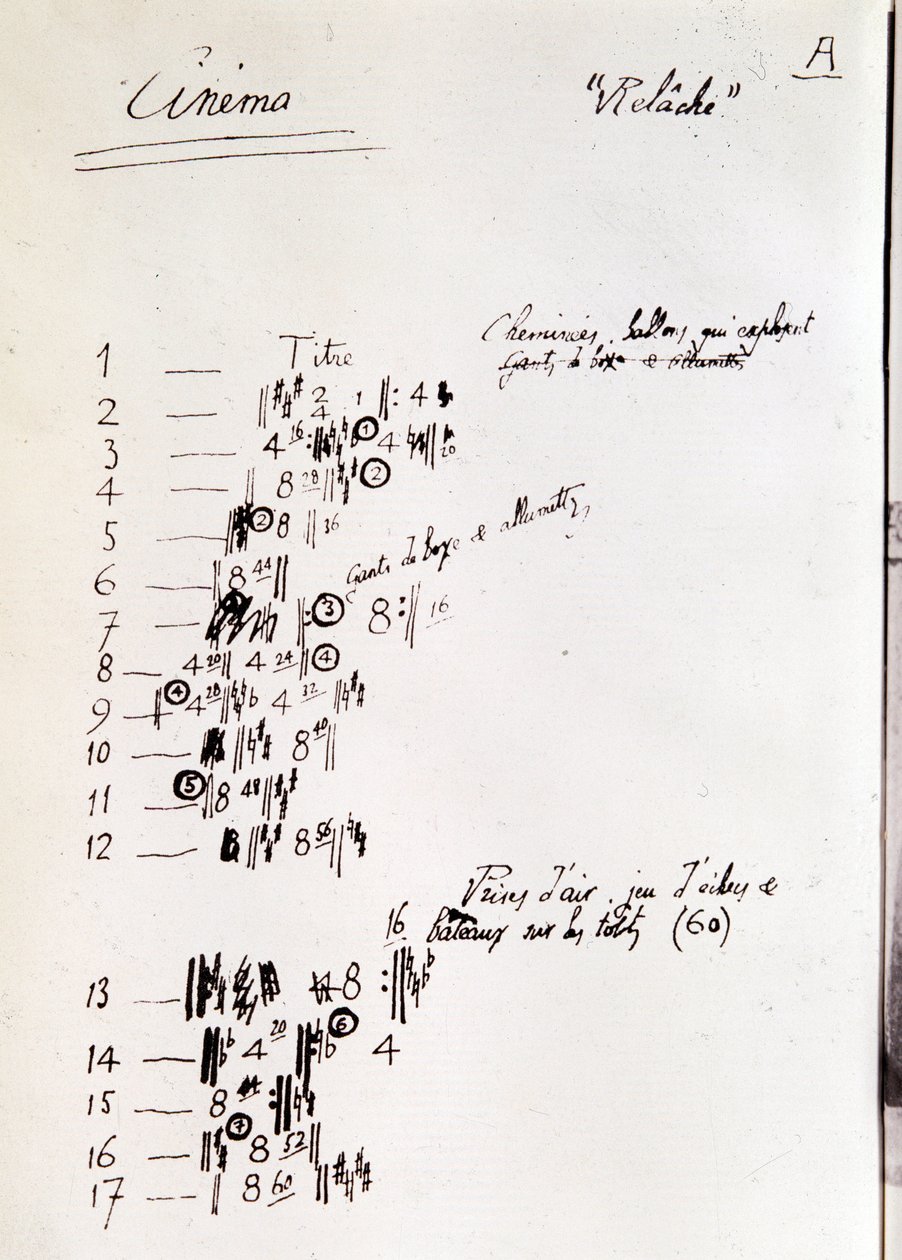 A
Cinéma "Relâche"
Cheminées, ballons qui explosent
Gants de boxe & allumettes
1 — Titre
2 — ‖ ♯♯♯ 2 4 1 ‖: 4
3 — 4 16 :‖ ♮♮♭ ① 4 ♮♮ ‖ 20
4 — ‖ 8 28 ‖ ♯♯♯ ②
5 — ‖ ② 8 ‖ 36
6 — ‖ 8 44 ‖
Gants de boxe & allumettes
7 — ‖: ③ 8 :‖ 16
8 — 4 20 ‖ 4 24 ‖ ④
9 — ‖ ④ 4 28 ‖ ♮♮♭ 4 32 ‖ ♮♯♯
10 — ‖ ♮♯♯ 8 40 ‖
11 — ⑤ ‖ 8 48 ‖ ♯♯♯
12 — ‖ ♯♯♯ 8 56 ‖ ♮♯♯
Prises d'air, jeu d'échecs &
bateaux sur les toits (60)
16
13 — 8 :‖ ♮♮♭♭
14 — ‖ ♭♭ 4 20 ‖: ♮♭ ⑥ 4
15 — 8 :‖ ♮♮♯
16 — ‖ ♯♯ ⑦ 8 52 ‖
17 — ‖ 8 60 ‖ ♯♯♯♯